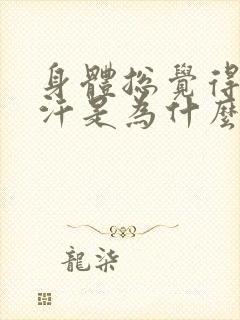 身體總覺得
汗是為什麼
龍柒